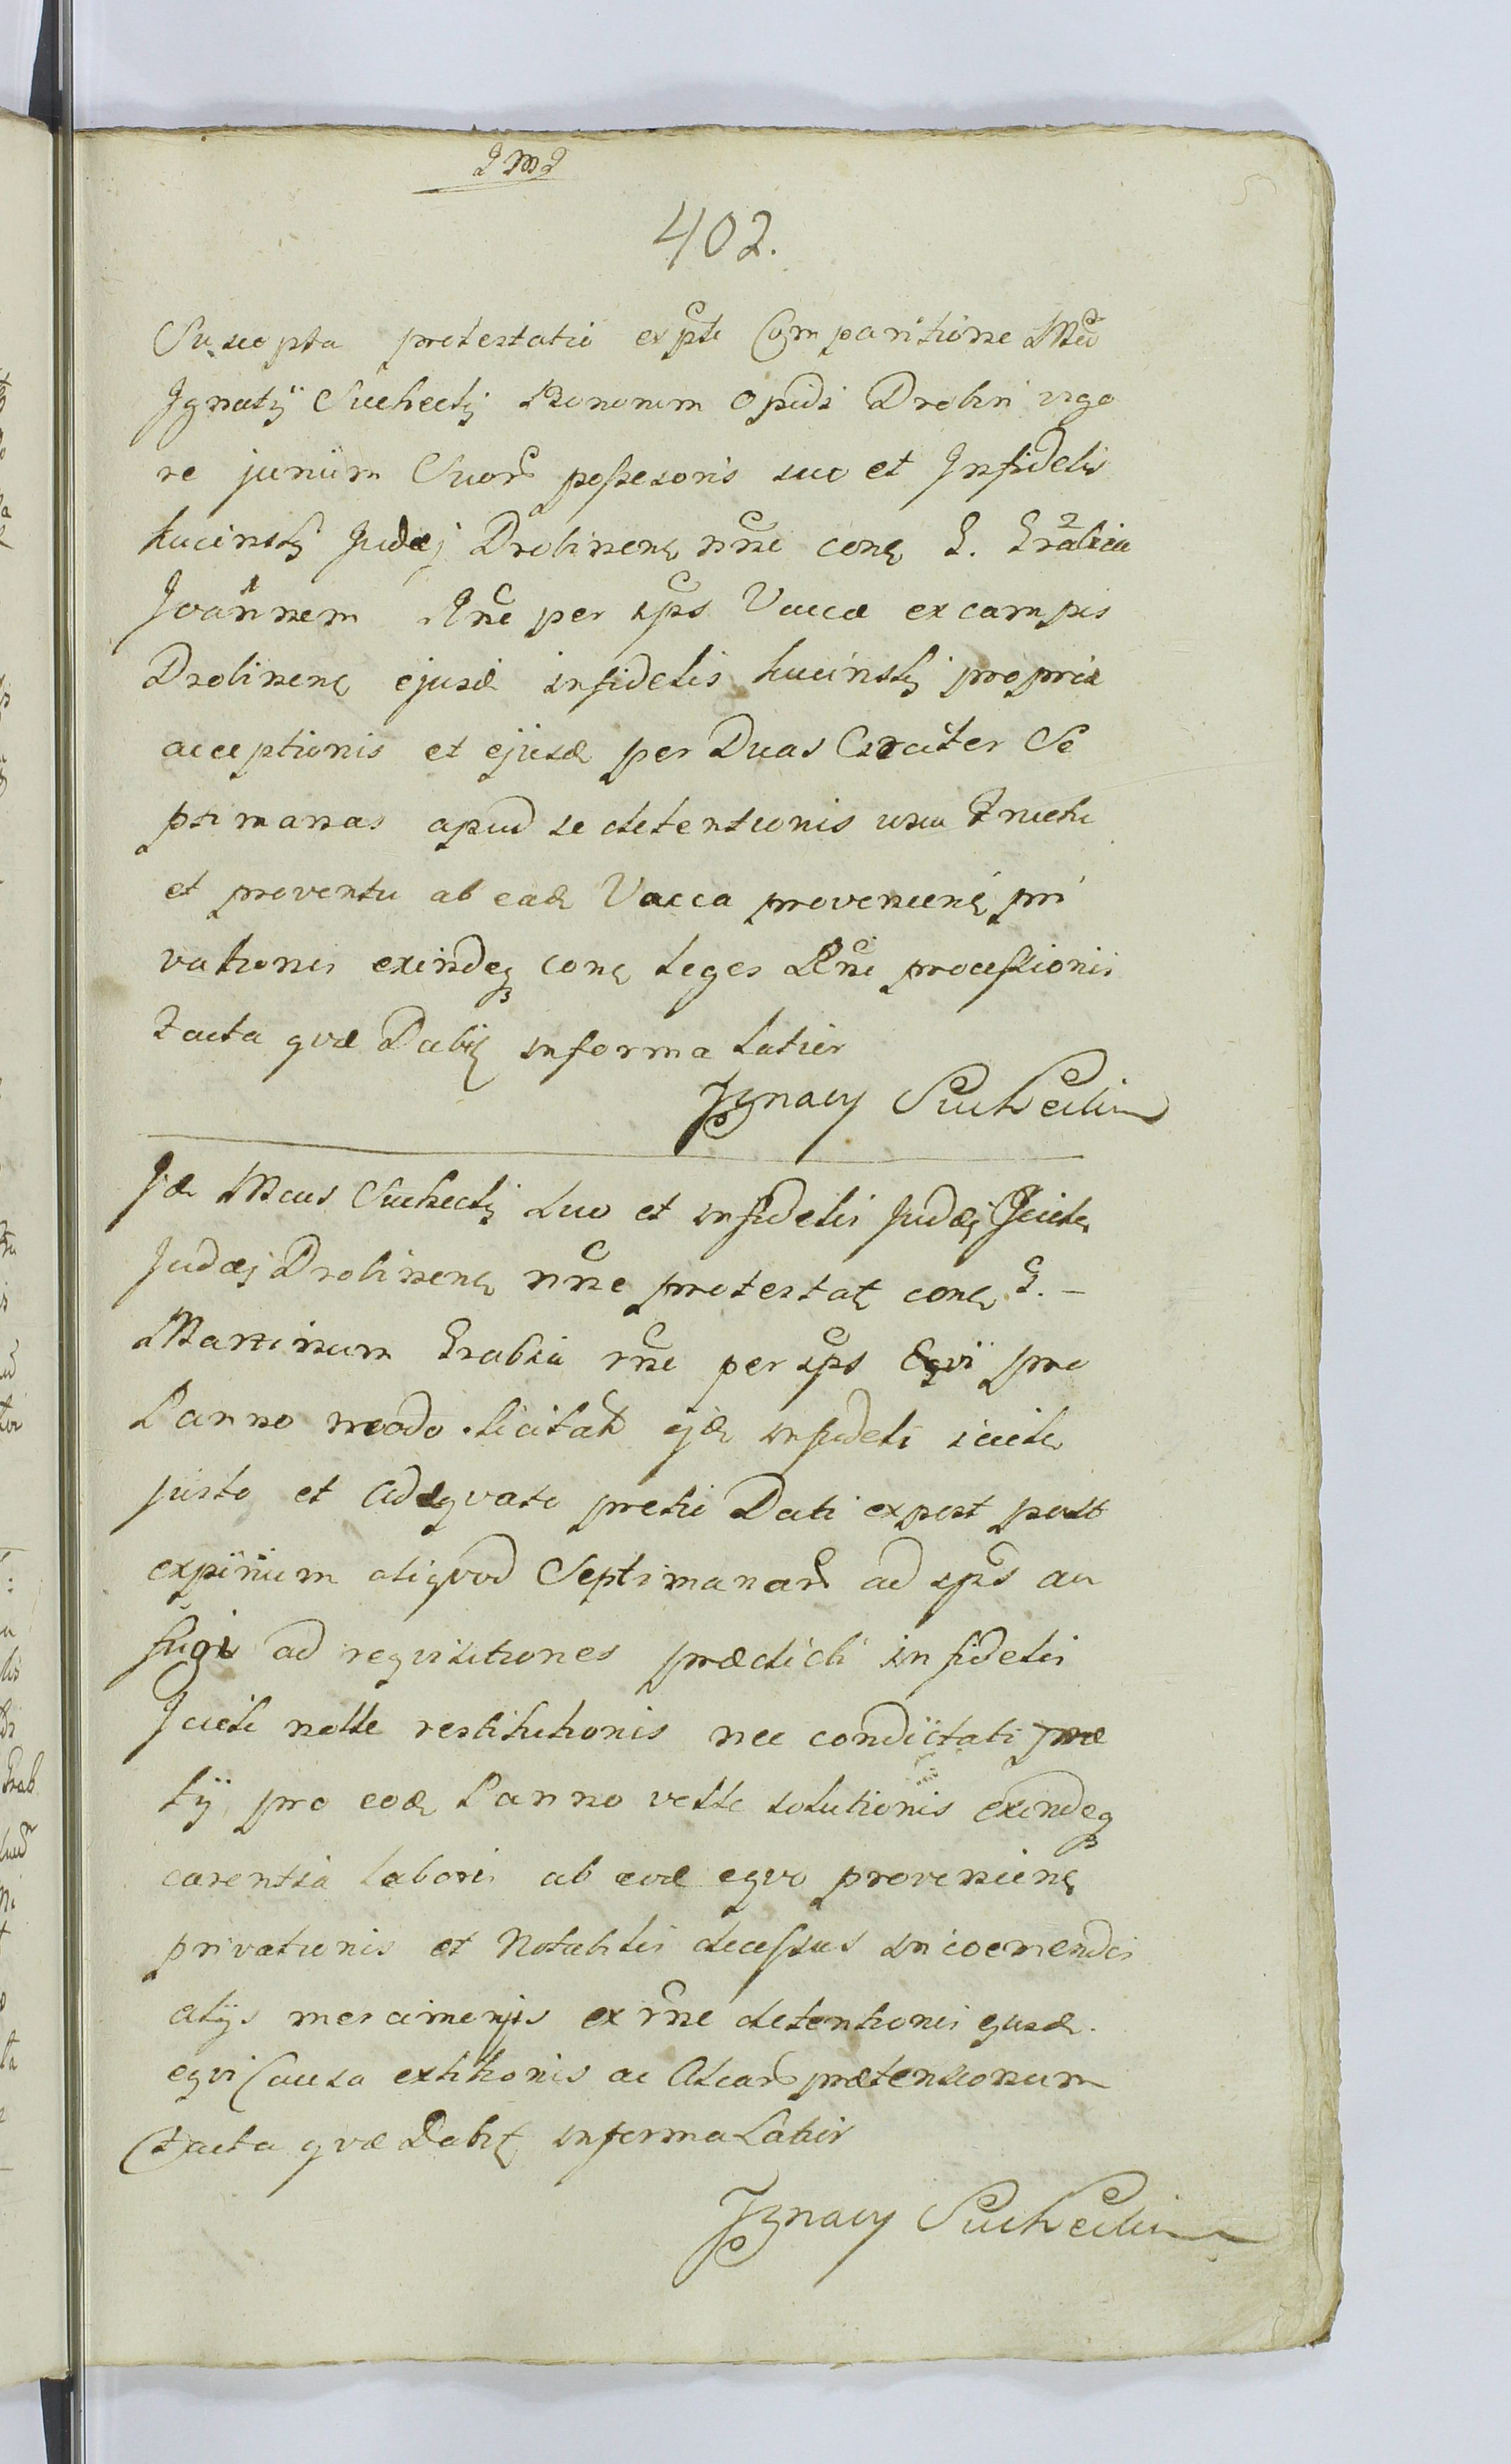 402.
Suscepta protestatio ex pte Comparitione Mci
Ignatij Suchecky Bonorum Opidi Drobin vigo
re jurium Suor possesoris suo et Infidelis
Kucinsky Judæj Drobinens nne cons G. Grabia
Joannem Rne per ips Vacca ex campis
Drobinens ejusd infidelis Kucinsky propria
acceptionis et ejusd per Duas Circiter Se
ptimanas apud se detentionis usu Fructu
et proventu ab ead Vacca proveniens pri
vationis exindeq cons leges Rne processionis
Facta quæ Dabit informa latior
Ignacy Suchecki
Id Mcus Suchecky suo et infidelis Judæj
Judæj Drobinens nne protestat cons G. -
Martinum Grabia rne per ips Eqvi pro
Panno modo licitat infideli
justo et adeqvato pretio Dati expost post
expirium aliqvod Septimanar ad ips au
fugi ad reqvisitiones prædicti infidelis
nolle restitutionis nec condictati præ
tij pro eod Panno velle solutionis exindeq
carentia laboris ab eod eqvo proveniens
privationis et Notabilis decessus in coemendis
alijs mercimonijs ex rne detentionis ejusd.
eqvi Causa extitionis ac aliar prætensionum
Facta qvæ Dabit informa Latior
Ignacy Suchecki